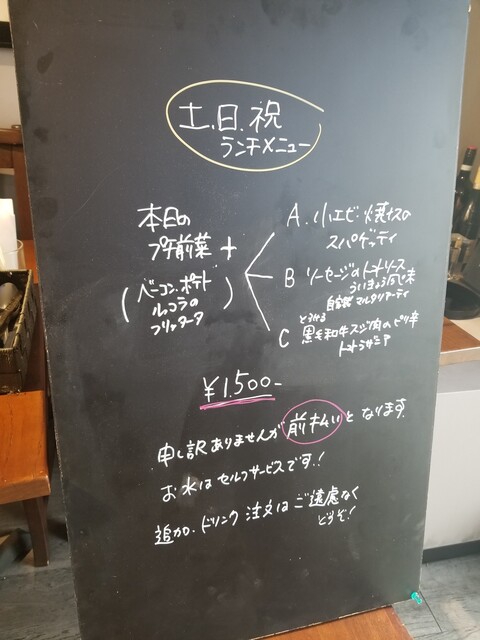 土.日.祝
ランチメニュー
本日の
プチ前菜 +
(ベーコン.ポテト
ルッコラの
フリッタータ)
A. 小エビ・焼ナスの
スパゲッティ
B ソーセージのトマトソース
ういきょう風味
自家製マルタリアーティ
とろける
C 黒毛和牛スジ肉のピリ辛
トマトラザニア
¥1.500-
申し訳ありませんが前払いとなります.
お水はセルフサービスです.!
追加.ドリンク注文はご遠慮なく
どうぞ!